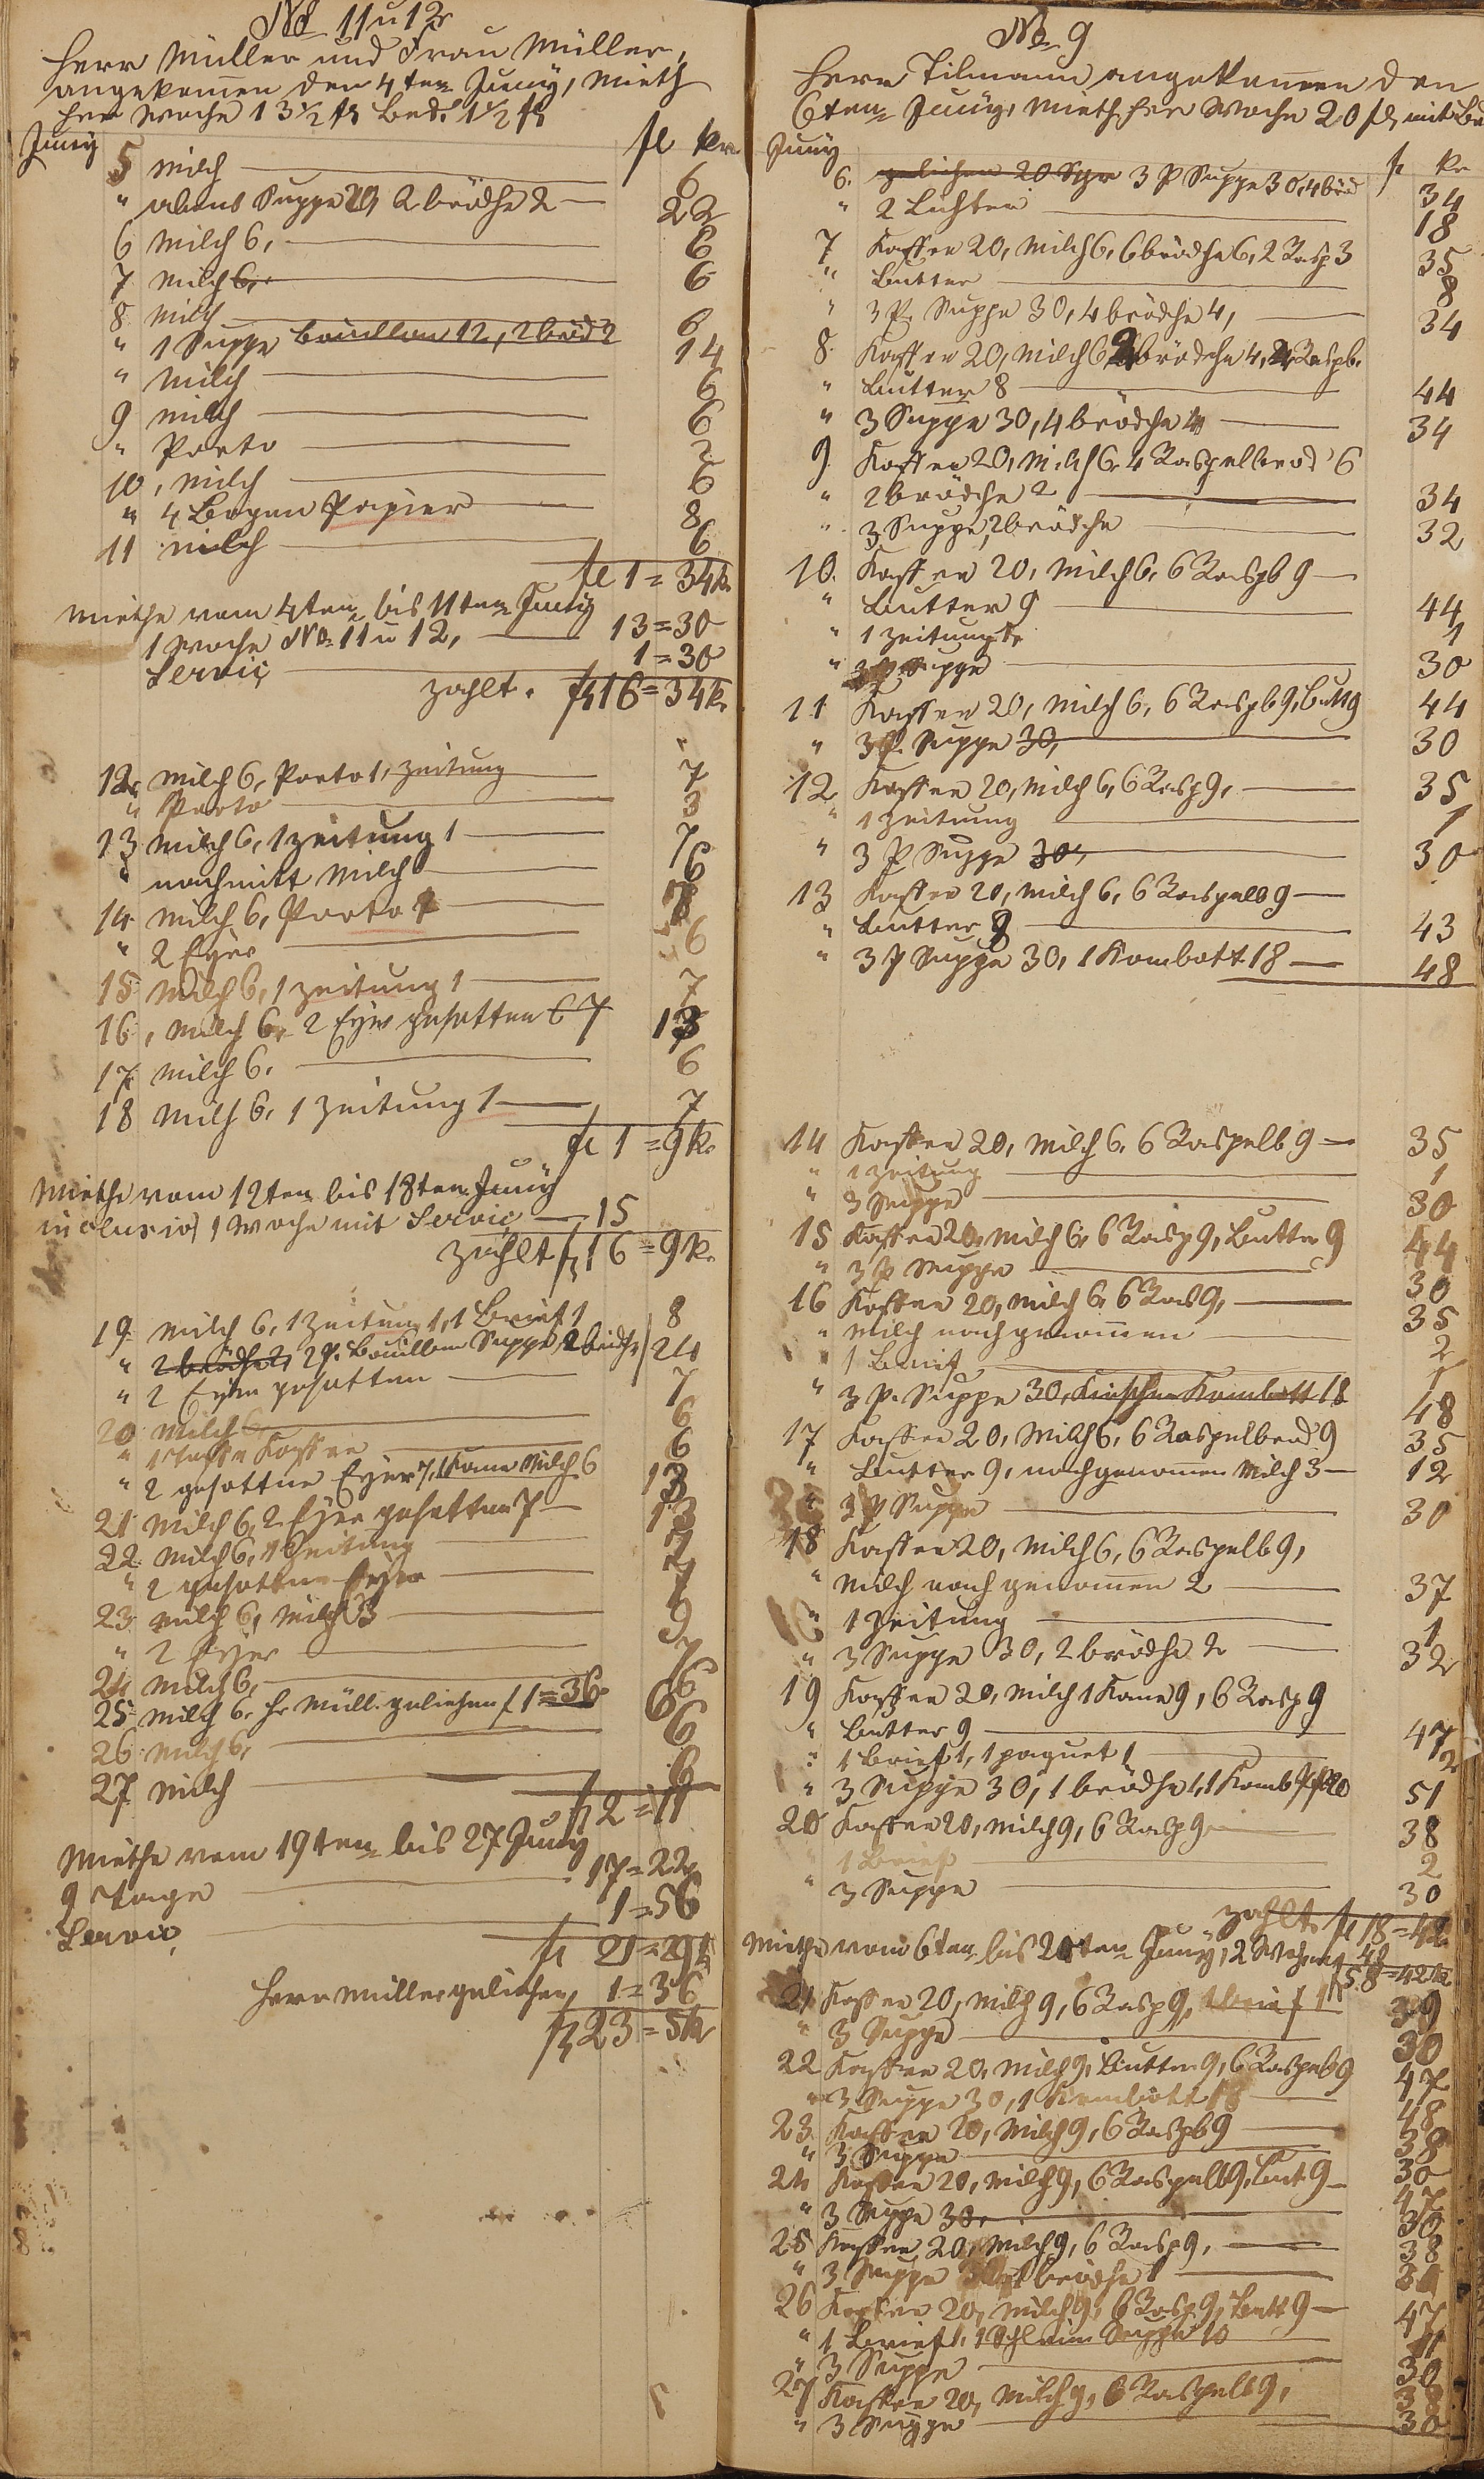 No 11 u 12
Herr Müller und Frau Müller,
angekom̄en den 4ten Juny, Mieth
per Woche 13½ fl Bed. 1½ fl
Juny fl kr
5 Milch 6
" abens Suppe 20, 2 brödhe 2 22
6 Milch 6, 6
7 Milch 6, 6
8 Milch 6
" 1 Suppe Bouillon 12, 2 bröd 2 14
" Milch 6
9 Milch 6
" Porto 2
10, Milch 6
" 4 Bogen Papier 8
11 Milch 6
fl 1 = 34 kr
Miethe vom 4ten bis 11ten Juny
1 Woche No 11 u 12, 13 = 30
Servic 1 = 30
zahlt. fl 16 = 34 kr
12 Milch 6, Porto 1, Zeitung 7
" Porto 3
13 Milch 6, 1 Zeitung 1 7
" nachmitt Milch 6
14 Milch 6, Porto
" 2 Eyer 6
15 Milch 6, 1 Zeitung 1 7
16, Milch 6, 2 Eyer gesotten 7 13
17 Milch 6. 6
18 Milch 6, 1 Zeitung 1 7
fl 1 = 9 kr
Miethe vom 12ten bis 18ten Juny
inclusiv 1 Woche mit Servic 15
zahlt fl 16 = 9 kr
19 Milch 6, 1 Zeitung 1, 1 Brief 1 8
" 2 brödhe 2, 2 P. Bouillon Suppe, 2 brödhe 24
" 2 Eyer gesotten 7
20 Milch 6 6
" 1 Tasse Kaffee 6
" 2 gesottne Eyer 7, 1 Kane Milch 6 13
21 Milch 6, 2 Eyer gesotten 7 13
22 Milch 6, 1 Zeitung 7
" 2 gesottne Eyer 7
23 Milch 6, Milch 3 9
" 2 Eyer 7
24 Milch 6, 6
25 Milch 6. Hr Müll. geliehen f 1 = 36 6
26 Milch 6, 6
27 Milch 6
fl 2 = 11
Miethe vom 19ten bis 27 Juny
9 Tage 17 = 22
Servic 1 = 56
fl 21 = 29 k
Herr Müller geliehen 1 = 36
fl 23 = 5 kr
No 9
Herr Tilmann angekom̄en den
6ten Juny, Mieth per Woche 20 fl, mit Be
Juny fl kr
6. geliehen 20 Sgr 3 P Suppe 30, 4 bröd 34
" 2 Lichter 18
7 Kaffee 20, Milch 6, 6 brödhe 6, 2 Rasp 3 35
" Butter 8
" 3 P. Suppe 30, 4 brödche 4, 34
8. Kaffee 20, Milch 6, brödche 4, Raspb.
" Butter 8 44
" 3 Suppe 30, 4 brödche 4 34
9 Kaffee 20, Milch 6, 4 Raspelbrod 6
" 2 brödche 2 34
" 3 Suppe, 2 brödche 32
10. Kaffee 20, Milch 6, 6 Raspb 9
" Butter 9 44
" 1 Zeitung 1
" 3 P Suppe 30
11 Kaffee 20, Milch 6, 6 Raspb 9, Butt 9 44
" 3 P. Suppe 30, 30
12 Kaffee 20, Milch 6, 6 Rasp 9, 35
" 1 Zeitung 1
" 3 P Suppe 30, 30
13 Kaffee 20, Milch 6, 6 Raspelb 9
" Butter 8 43
" 3 P Suppe 30, 1 Kombott 18 48
14 Kaffee 20, Milch 6, 6 Raspelb 9 35
" 1 Zeitung 1
" 3 Suppe 30
15 Kaffee 20, Milch 6, 6 Rasp 9, Butter 9 44
" 3 P Suppe 30
16 Kaffee 20, Milch 6, 6 Ras 9, 35
" Milch nach genom̄en 2
" 1 Brief 1
" 3 P. Suppe 30, Kirschen Kombott 18 48
17 Kaffee 20, Milch 6, 6 Raspelbrod 9 35
" Butter 9, nachgenom̄en Milch 3 12
" 3 P Suppe 30
18 Kaffee 20, Milch 6, 6 Raspelb 9,
" Milch nach genom̄en 2 37
" 1 Zeitung 1
" 3 Suppe 30, 2 brödhe 2 32
19 Kaffee 20, Milch 1 Kane 9, 6 Rasp 9
" Butter 9 47
" 1 Brief 1, 1 paquet 1 2
" 3 Suppe 30, 1 brödhe 1, 1 Komb 20 51
20 Kaffee 20, Milch 9, 6 Rasp 9 38
" 1 Brief 2
" 3 Suppe 30
zahlt fl 18 = 42
Miethe vom 6ten bis 20ten Juny, 2 Wochen 40
58 = 42 kr
21 Kaffee 20, Milch 9, 6 Rasp 9, 1 Brief 1 39
" 3 Suppe 30
22 Kaffee 20, Milch 9, Butter 9, 6 Raspelb 9 47
" 3 Suppe 30, 1 Kombott 18 48
23 Kaffee 20, Milch 9, 6 Raspb 9 38
" 3 Suppe 30
24 Kaffee 20, Milch 9, 6 Raspelb 9, Butt 9 47
" 3 Suppe 30, 30
25 Kaffee 20, Milch 9, 6 Rasp 9, 38
" 3 Suppe brödhe 1
26 Kaffee 20, Milch 9, 6 Rasp. 9, Butt 9 47
" 1 Brief 1, 1 Schleim Suppe 10 11
" 3 Suppe 30
27 Kaffee 20, Milch 9, 6 Raspelb 9, 38
" 3 Suppe 30